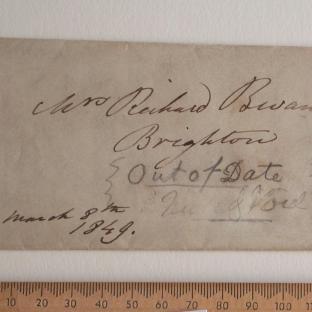 Mrs Richard Bevan
Brighton
Out of Date
& Void
March 8th
1849.
10 20 30 40 50 60 70 80 90 100 110 120